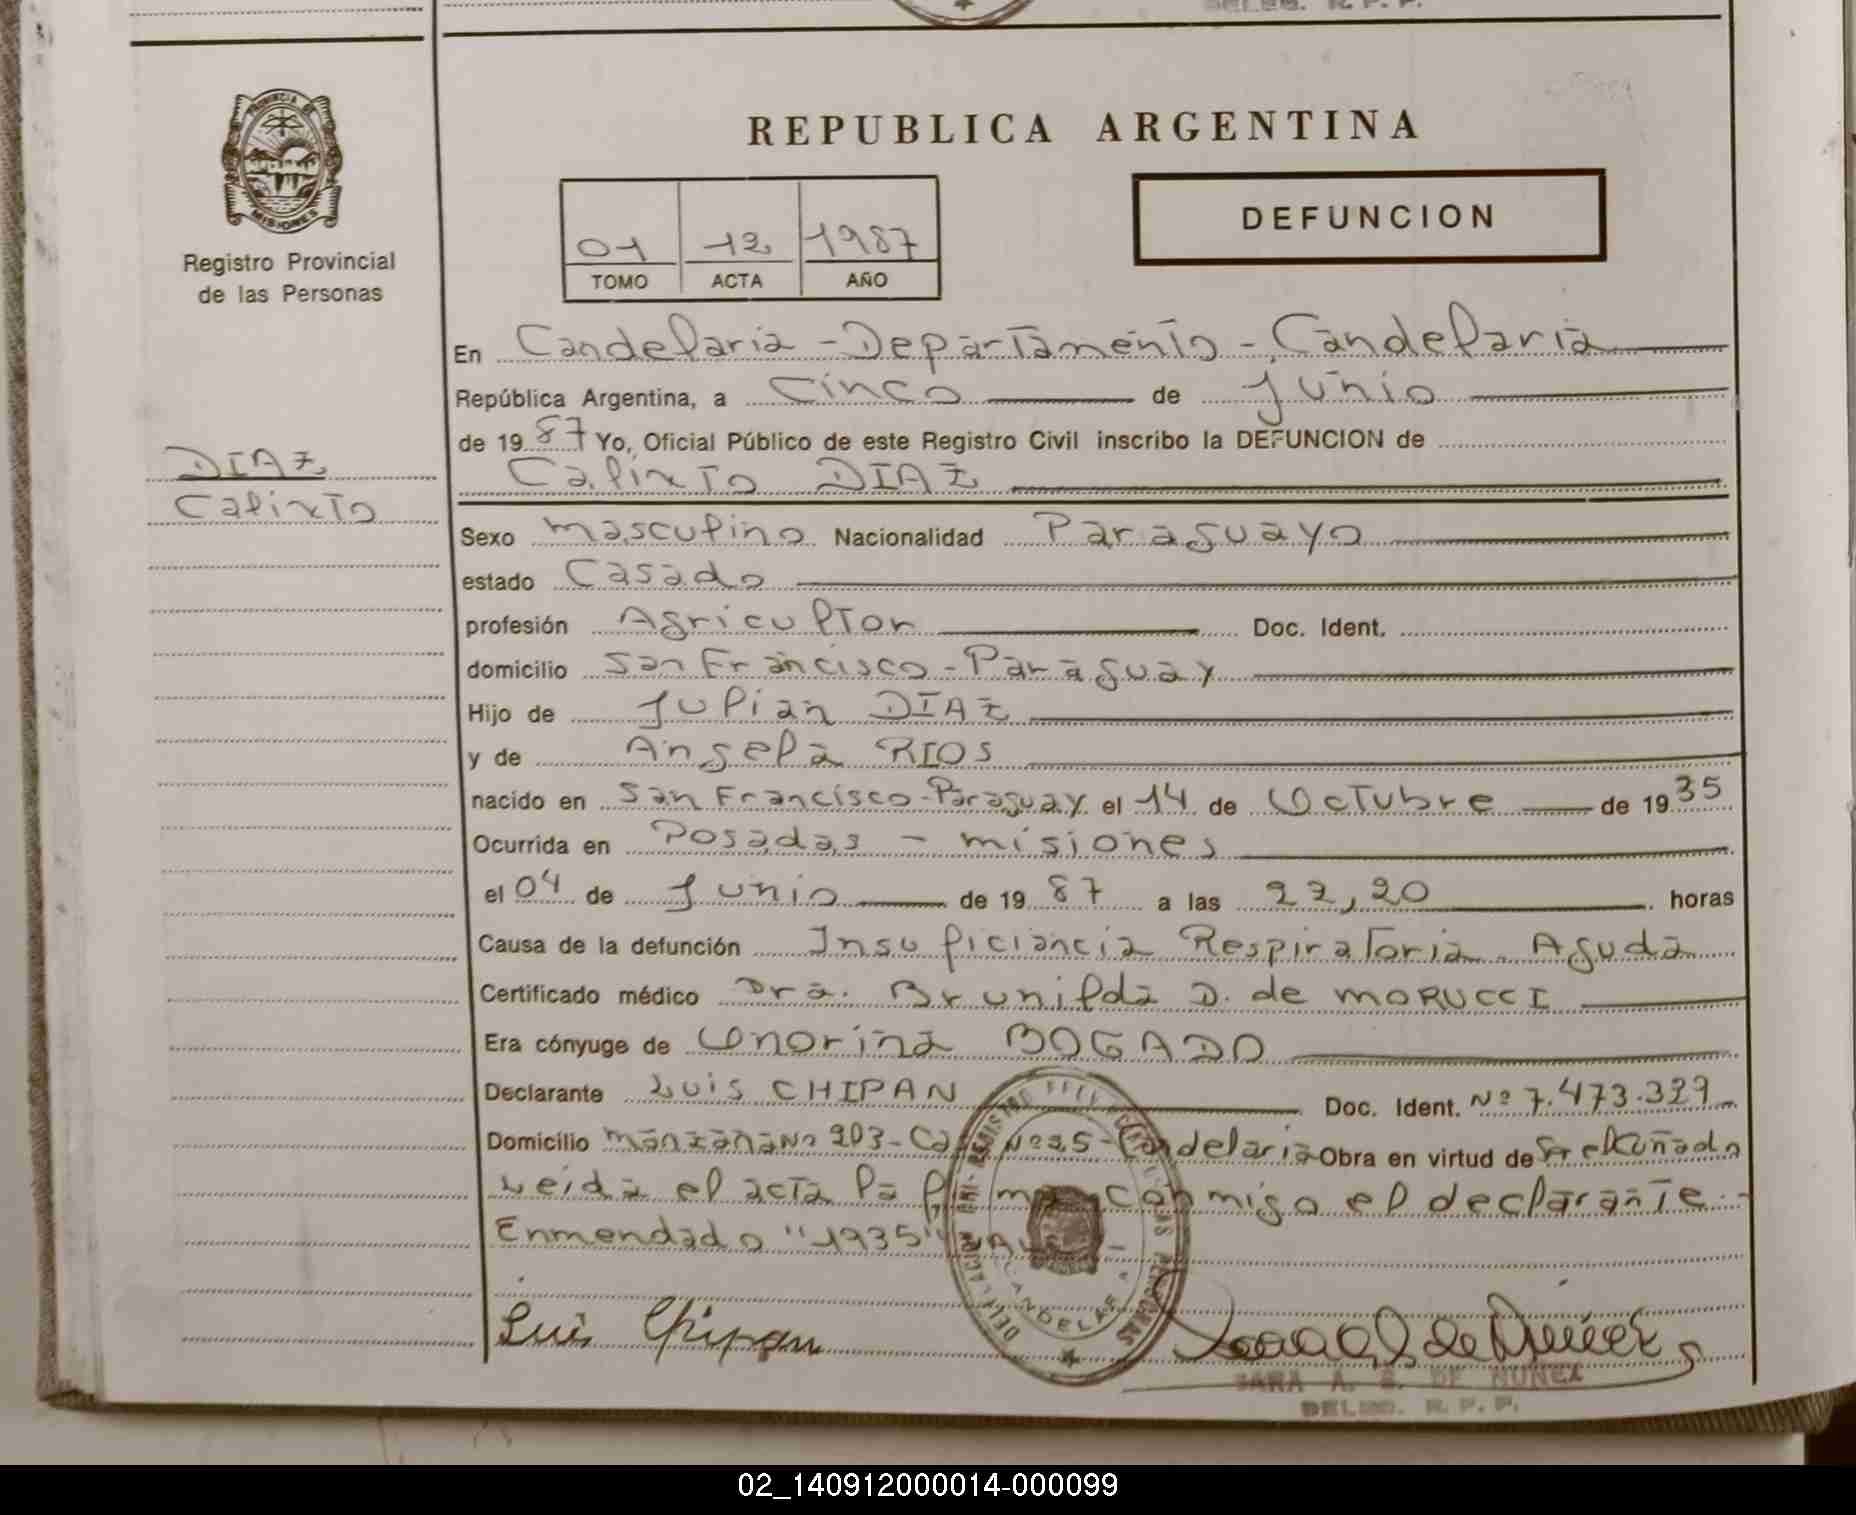 PROVINCIA DE
MISIONES
Registro Provincial
de las Personas
DIAZ
Calixto
REPUBLICA ARGENTINA
01 12 1987
TOMO ACTA AÑO
DEFUNCION
En Candelaria - Departamento - Candelaria
República Argentina, a Cinco de Junio
de 1987 Yo, Oficial Público de este Registro Civil inscribo la DEFUNCION de
Calixto DIAZ
Sexo masculino Nacionalidad Paraguayo
estado Casado
profesión Agricultor Doc. Ident.
domicilio San Francisco - Paraguay
Hijo de Julián DIAZ
y de Angela RIOS
nacido en San Francisco-Paraguay el 14 de Octubre de 1935
Ocurrida en Posadas - misiones
el 04 de Junio de 1987 a las 22,20 horas
Causa de la defunción Insuficiancia Respiratoria Aguda
Certificado médico Dra. Brunilda D. de MORUCCI
Era cónyuge de Onorina BOGADO
Declarante Luis CHIPAN Doc. Ident. Nº 7.473.329
Domicilio Manzana Nº 203 - Casa Nº 25 - Candelaria Obra en virtud de
Leida el acta la firma conmigo el declarante.-
Enmendado "1935" VALE -
Luis Chipan
SARA A. DE NUÑEZ
DELEG. R. P. P.
02_140912000014-000099